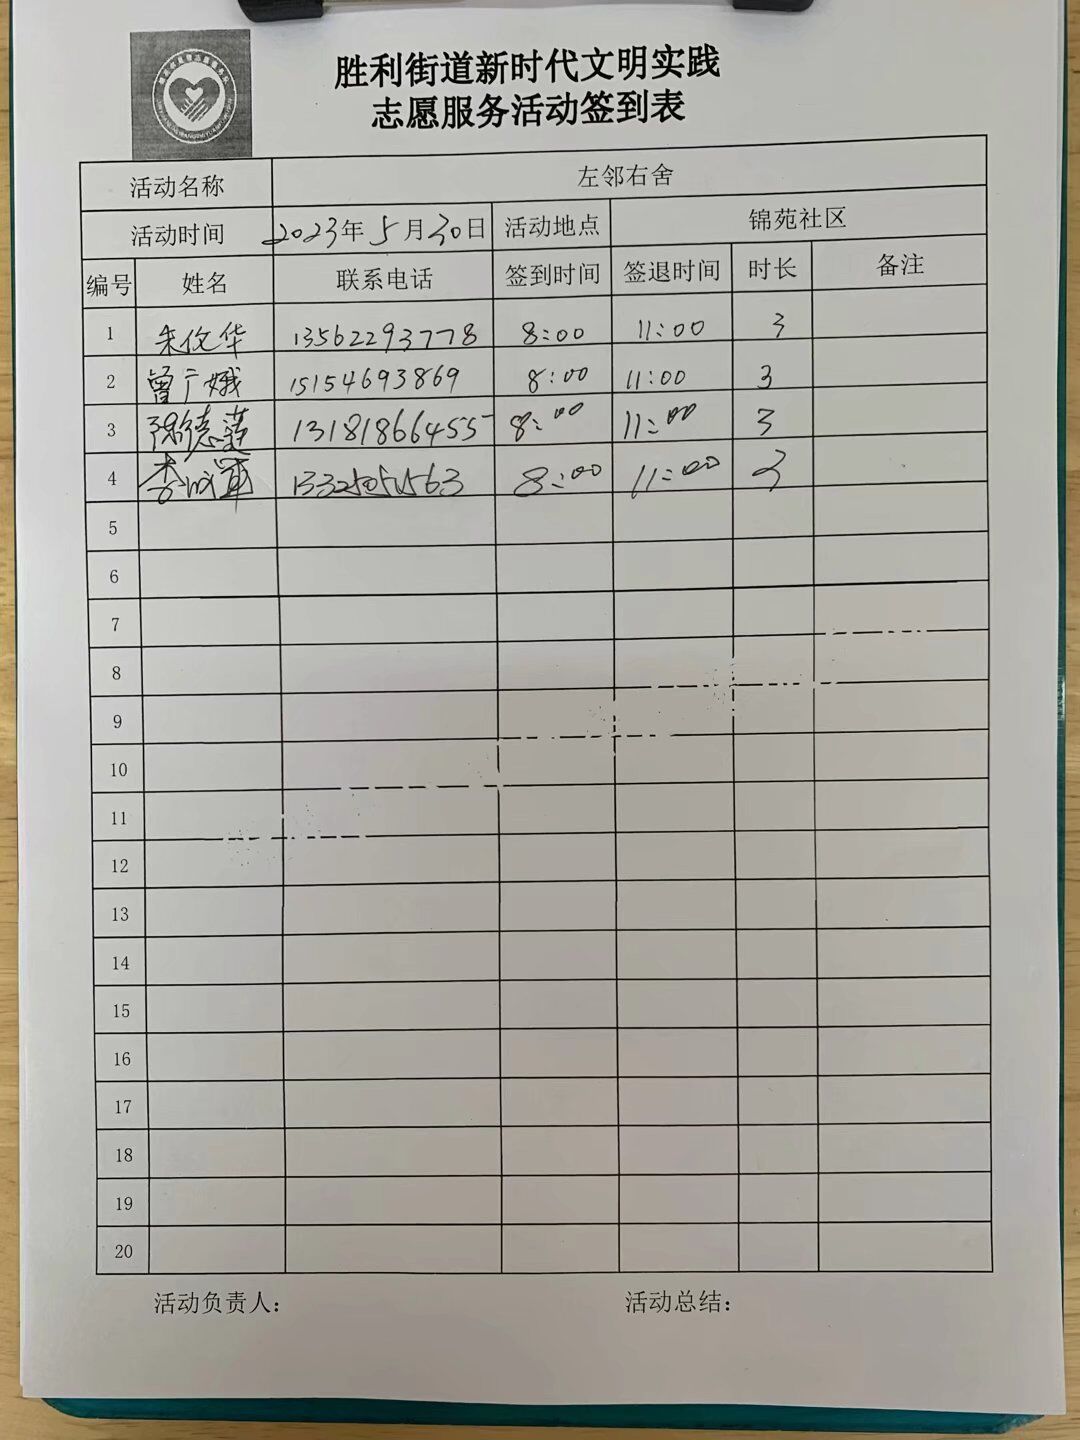 胜利街道新时代文明实践
志愿服务活动签到表
活动名称 左邻右舍
活动时间 2023年5月30日 活动地点 锦苑社区
编号 姓名 联系电话 签到时间 签退时间 时长 备注
1 朱俊华 13562293778 8:00 11:00 3
2 曾广娥 15154693869 8:00 11:00 3
3 陈德莲 13181866455 8:00 11:00 3
4 李 8:00 11:00 3
5
6
7
8
9
10
11
12
13
14
15
16
17
18
19
20
活动负责人: 活动总结: